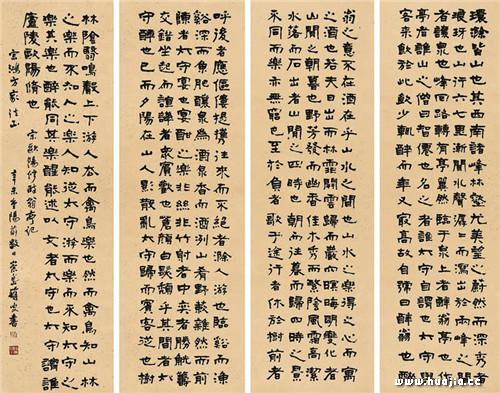 環滁皆山也其西南諸峰林壑尤美望之蔚然而深秀者
琅玡也山行六七里漸聞水聲潺潺而瀉出於兩峰之間
者釀泉也峰回路轉有亭翼然臨於泉上者醉翁亭也作
亭者誰山之僧曰智僊也名之者誰太守自謂也太守與
客來飲於此飲少輒醉而年又最高故自號曰醉翁也醉
翁之意不在酒在乎山水之間也山水之樂得之心而寓
之酒也若夫日出而林霏開雲歸而巖穴暝晦明變化者
山間之朝暮也野芳發而幽香佳木秀而繁陰風霜高潔
水落而石出者山間之四時也朝而往暮而歸四時之景不
同而樂亦無窮也至於負者歌乎途行者休於樹前者
呼後者應傴僂提攜往來而不絕者滁人游也臨谿而漁
谿深而魚肥釀泉為酒泉香而酒洌山肴野蔌雜然而前
陳者太守宴也宴酣之樂非絲非竹射者中奕者勝觥籌
交錯坐起而諠譁者眾賓歡也蒼顏白髮頹乎其間者太守
醉也已而夕陽在山人影散亂太守歸而賓客從也樹
林陰翳鳴聲上下游人去而禽鳥樂也然而禽鳥知山林
之樂而不知人之樂人知從太守游而樂而不知太守之
樂其樂也醉能同其樂醒能述以文者太守也太守謂誰
廬陵歐陽脩也 宋歐陽修醉翁亭記
方家法正 辛未 陽前數日 書
www.huajia.cc